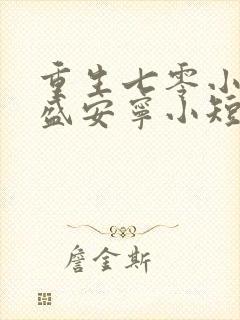 重生七零小
盛安宁小短
詹金斯